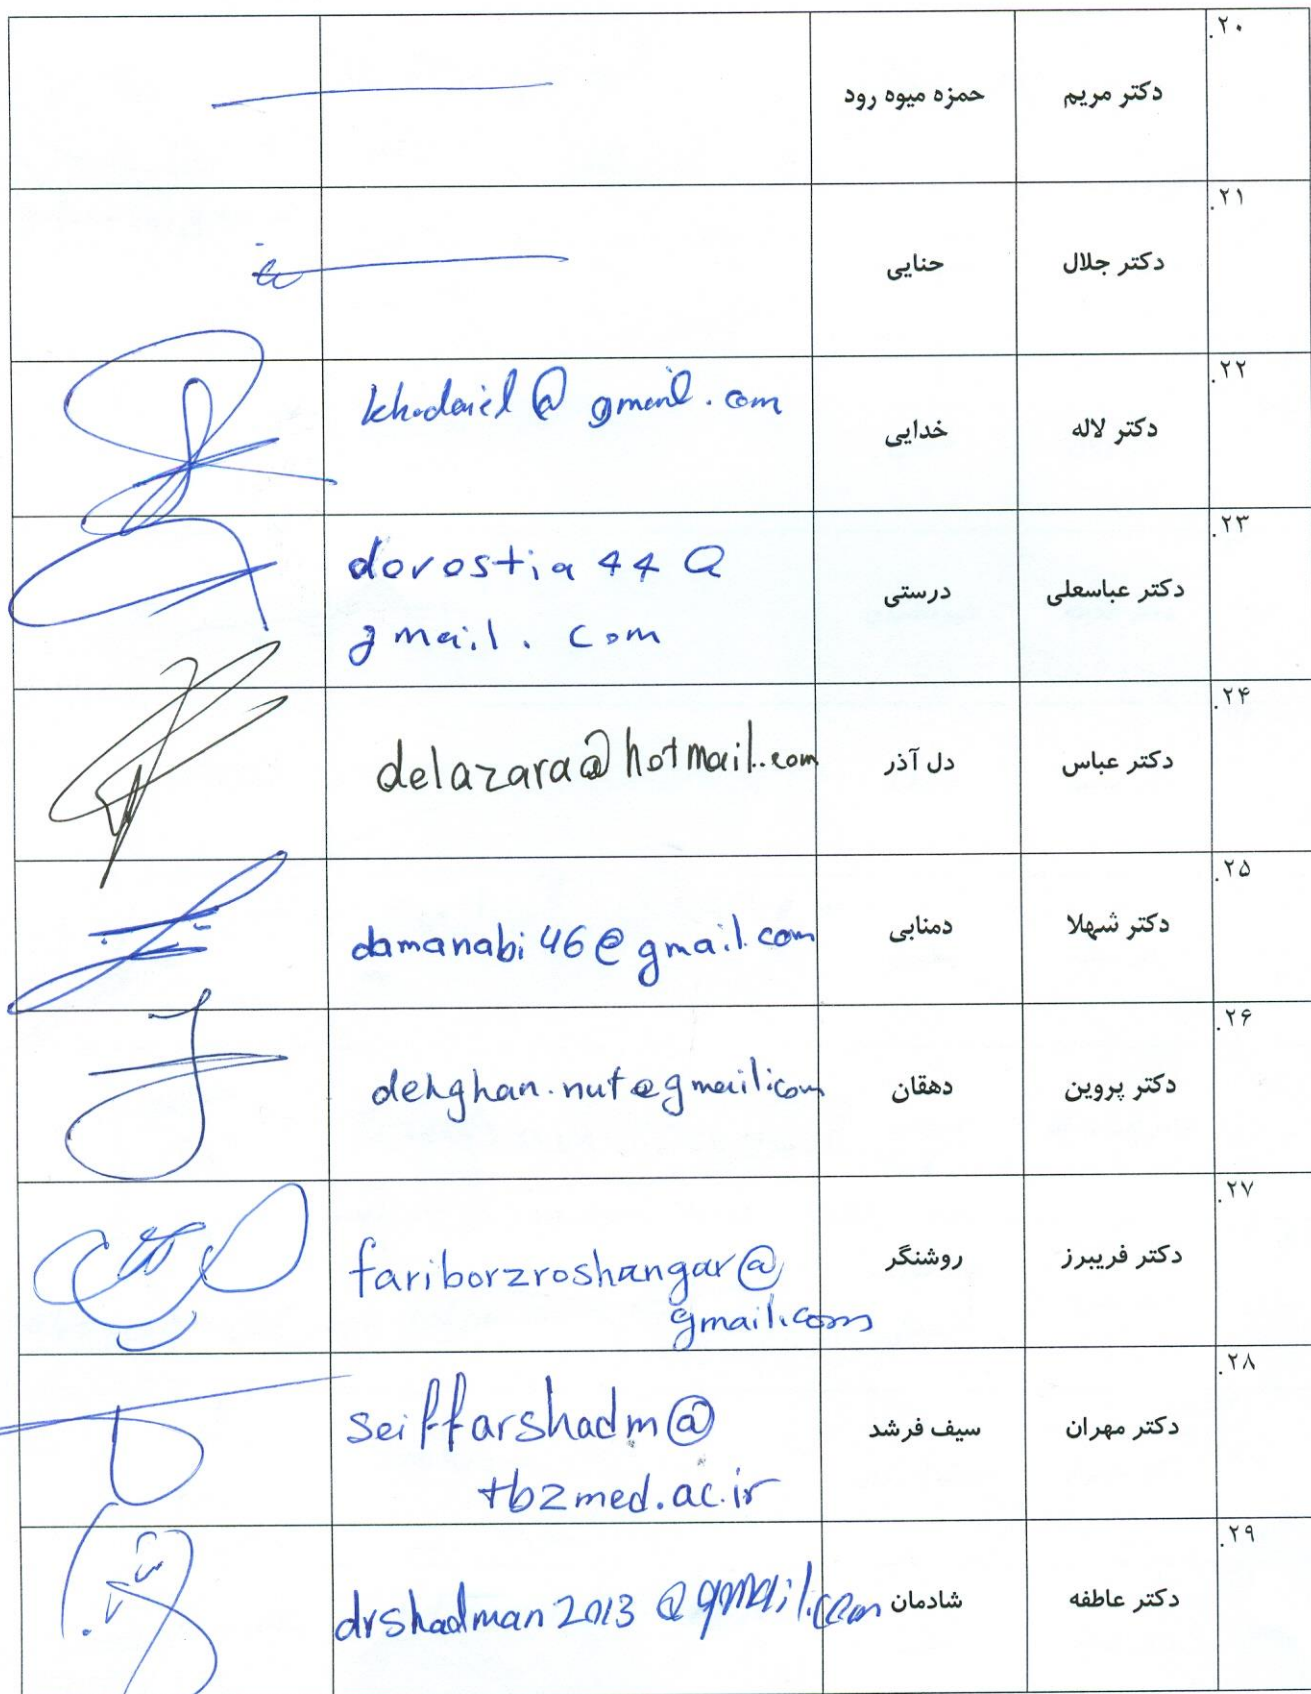 ۲۰. دکتر مریم حمزه میوه رود
۲۱. دکتر جلال حنایی
۲۲. دکتر لاله خدایی khodaiel@gmail.com
۲۳. دکتر عباسعلی درستی dorostia44@
gmail.com
۲۴. دکتر عباس دل آذر delazara@hotmail.com
۲۵. دکتر شهلا دمنابی damanabi46@gmail.com
۲۶. دکتر پروین دهقان dehghan.nut@gmail.com
۲۷. دکتر فریبرز روشنگر fariborzroshangar@
gmail.com
۲۸. دکتر مهران سیف فرشد seiffarshadm@
tbzmed.ac.ir
۲۹. دکتر عاطفه شادمان drshadman2013@gmail.com